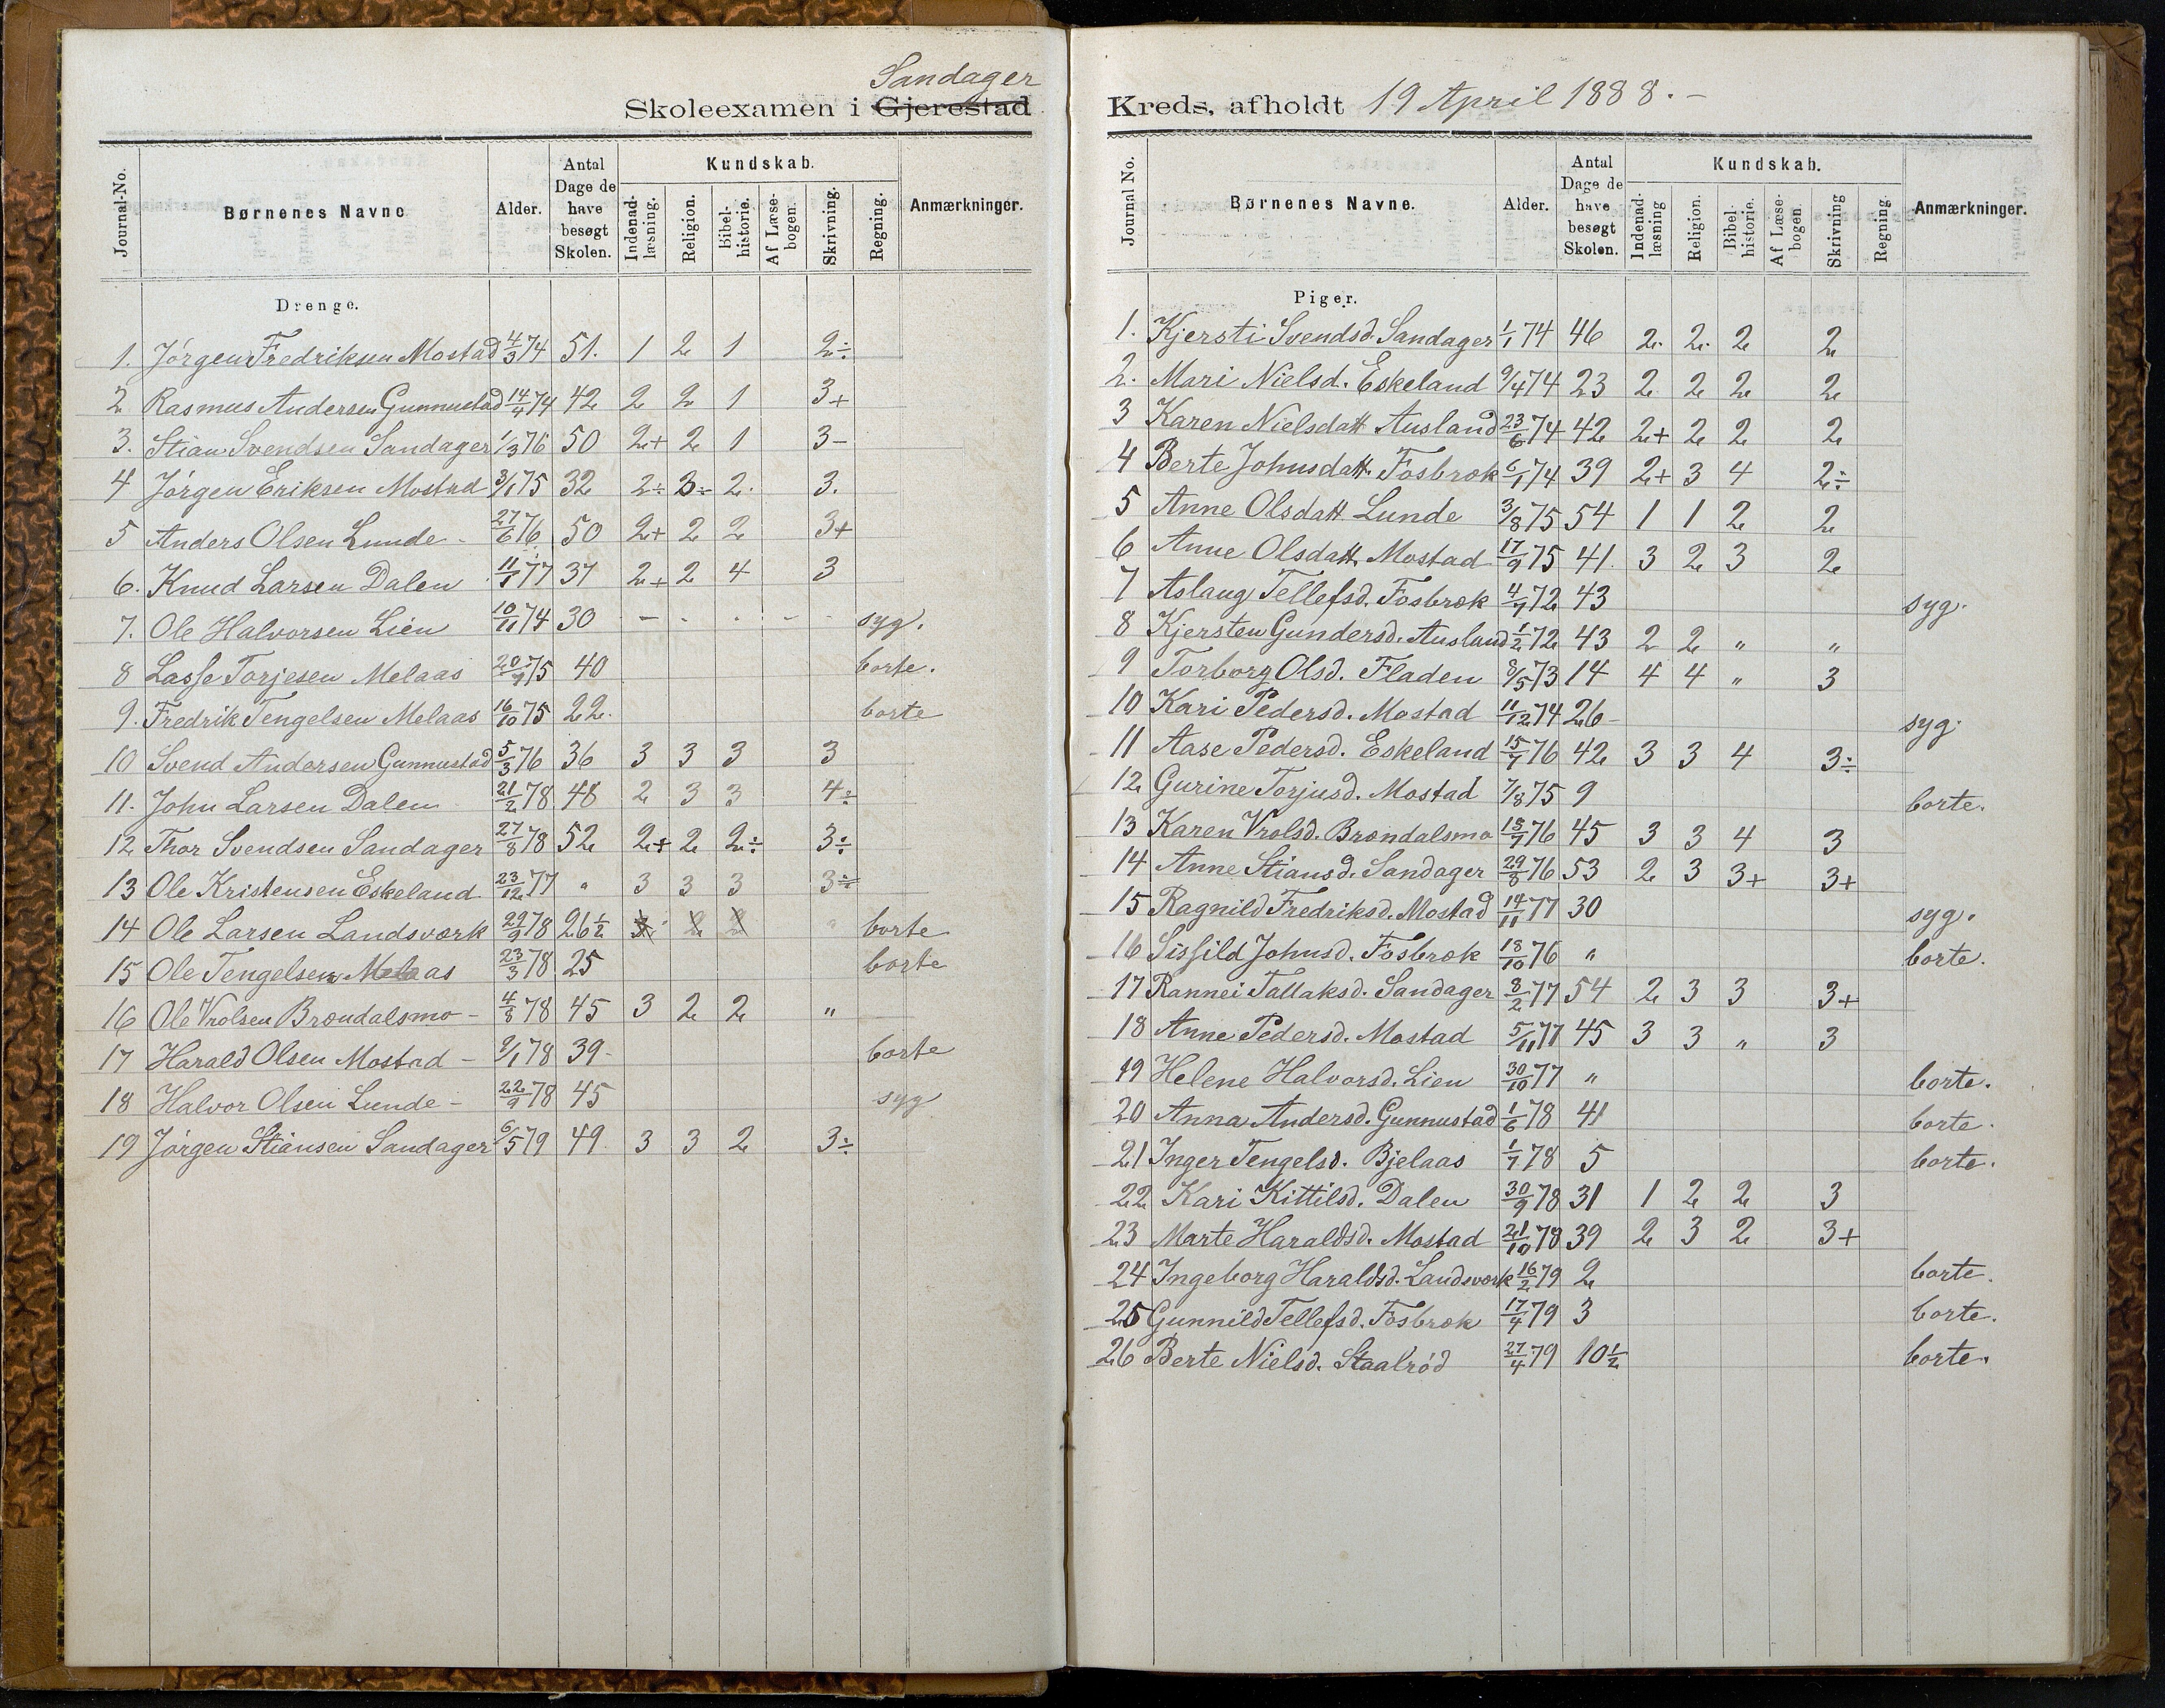 Sandager
Skoleexamen i Gjerestad
Journal-No. Børnenes Navne Alder. Antal Dage de have besøgt Skolen. Kundskab. Indenad-læsning. Religion. Bibel-historie. Af Læse-bogen. Skrivning. Regning. Anmærkninger.
Drenge.
1. Jørgen Fredriksen Mostad 4/3 74 51. 1 2 1 2÷
2 Rasmus Andersen Gunnustad 14/4 74 42 2 2 1 3+
3. Stian Svendsen Sandager 1/3 76 50 2+ 2 1 3-
4 Jørgen Eriksen Mostad 3/1 75 32 2÷ 3÷ 2. 3.
5 Anders Olsen Lunde - 27/6 76 50 2+ 2 2 3+
6. Knud Larsen Dalen 11/1 77 37 2+ 2 4 3
7. Ole Halvorsen Lien 10/11 74 30 - - - - - syg.
8 Lasse Torjesen Melaas 20/7 75 40 borte.
9. Fredrik Tengelsen Melaas 16/10 75 22. borte
10 Svend Andersen Gunnustad 5/3 76 36 3 3 3 3
11. John Larsen Dalen 21/2 78 48 2 3 3 4÷
12 Thor Svendsen Sandager 27/8 78 52 2+ 2 2÷ 3÷
13 Ole Kristensen Eskeland 23/12 77 " 3 3 3 3÷
14 Ole Larsen Landsværk 29/9 78 26½ 2 2 " borte
15 Ole Tengelsen Melaas 23/3 78 25 borte
16 Ole Vrolsen Brøndalsmo - 4/8 78 45 3 2 2 "
17 Harald Olsen Mostad - 9/1 78 39- borte
18 Halvor Olsen Lunde - 22/9 78 45 syg
19 Jørgen Stiansen Sandager 6/5 79 49. 3 3 2 3÷
Kreds, afholdt 19 April 1888.-
Journal No. Børnenes Navne. Alder. Antal Dage de have besøgt Skolen. Kundskab. Indenad-læsning Religion. Bibel-historie. Af Læse-bogen. Skrivning Regning. Anmærkninger.
Piger.
1. Kjersti Svendsd. Sandager 1/1 74 46 2. 2. 2 2
2. Mari Nielsd. Eskeland 9/4 74 23 2 2 2 2
3 Karen Nielsdatt Ausland 23/6 74 42 2+ 2 2 2
4 Berte Johnsdatt. Fosbrok 6/1 74 39 2+ 3 4 2÷
5 Anne Olsdatt Lunde 3/8 75 54 1 1 2 2
6 Anne Olsdatt. Mostad 17/9 75 41. 3 2 3 2
7 Aslaug Tellefsd. Fosbrok 4/7 72 43 syg.
8 Kjersten Gundersd. Ausland 1/2 72 43 2 2 " "
9 Torborg Olsd. Fladen 8/5 73 14 4 4 " 3
10 Kari Pedersd. Mostad 11/12 74 26- syg.
11 Aase Pedersd. Eskeland 15/7 76 42 3 3 4 3÷
12 Gurine Torjusd. Mostad 7/8 75 9 borte.
13 Karen Vrolsd. Brøndalsmo 18/7 76 45 3 3 4 3
14 Anne Stiansd. Sandager 29/8 76 53 2 3 3+ 3+
15 Ragnild Fredriksd. Mostad 14/11 77 30 syg.
16 Sissild Johnsd. Fosbrok 18/10 76 " borte.
17 Rannei Tallaksd. Sandager 8/2 77 54 2 3 3 3+
18 Anne Pedersd. Mostad 5/11 77 45 3 3 " 3
19 Helene Halvorsd. Lien 30/10 77 " borte.
20 Anna Andersd. Gunnustad 1/6 78 41 borte.
21 Inger Tengelsd. Bjelaas 1/7 78 5 borte.
22 Kari Kittilsd. Dalen 30/9 78 31 1 2 2 3
23 Marte Haraldsd. Mostad 21/10 78 39 2 3 2 3+
24 Ingeborg Haraldsd. Landsværk 16/2 79 2 borte.
25 Gunnild Tellefsd. Fosbrok 17/4 79 3 borte.
26 Berte Nielsd. Staalrød 27/4 79 10½ borte.